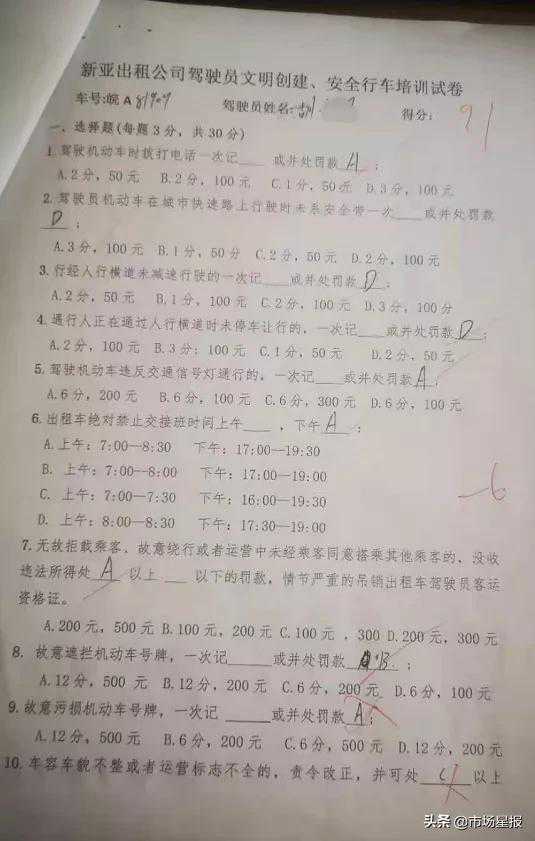 新亚出租公司驾驶员文明创建、安全行车培训试卷
车号:皖A 驾驶员姓名: 得分: 91
一、选择题(每题3分，共30分)
1. 驾驶机动车时拨打电话一次记____ 或并处罚款 A ；
A.2分，50元 B.2分，100元 C.1分，50元 D.3分，100元
2. 驾驶员机动车在城市快速路上行驶时未系安全带一次____或并处罚款
D ；
A.3分，100元 B.1分，50分 C.2分，50元 D.2分，100元
3. 行经人行横道未减速行驶的一次记____或并处罚款 D ；
A.2分，50元 B.1分，100元 C.2分，100元 D.3分，100分
4. 通行人正在通过人行横道时未停车让行的，一次记____或并处罚款 D ；
A.2分，100元 B.3分；100元 C.1分，50元 D.2分，50元
5. 驾驶机动车违反交通信号灯通行的，一次记____或并处罚款 A ；
A.6分，200元 B.6分，100元 C.6分，300元 D.6分，100元
6. 出租车绝对禁止交接班时间上午____，下午 A ；
A. 上午：7:00—8:30 下午：17:00—19:30
B. 上午：7:00—8:00 下午：17:00—19:00
C. 上午：7:00—7:30 下午：16:00—19:30
D. 上午：8:00—8:30 下午：17:30—19:00
-6
7. 无故拒载乘客、故意绕行或者运营中未经乘客同意搭乘其他乘客的，没收
违法所得处 A 以上 ___ 以下的罚款，情节严重的吊销出租车驾驶员客运
资格证。
A.200元，500元 B.100元，200元 C.100元 ，300 D.200元，300元
8. 故意遮拦机动车号牌，一次记____或并处罚款 B ；
A.12分，500元 B.12分，200元 C.6分，200元 D.6分，100元
9. 故意污损机动车号牌，一次记 ____或并处罚款 A ；
A.12分，500元 B.6分，200元 C.6分，500元 D.12分，200元
10. 车容车貌不整或者运营标志不全的，责令改正，并可处 C 以上
头条 @市场星报